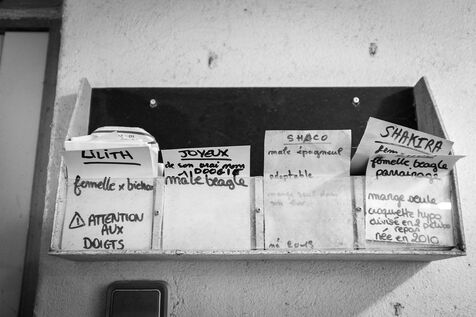 LILITH
femelle x bichon
⚠ ATTENTION
AUX
DOIGTS
JOYEUX
de son vrai nom
DOOGIE
mâle beagle
SHOCO
male épagneul
adoptable
mange seul dans
son box
né 2013
SHAKIRA
fem
femelle beagle
parrainage
mange seule
croquette hypo
divisé en 2 petits
repas
née en 2010